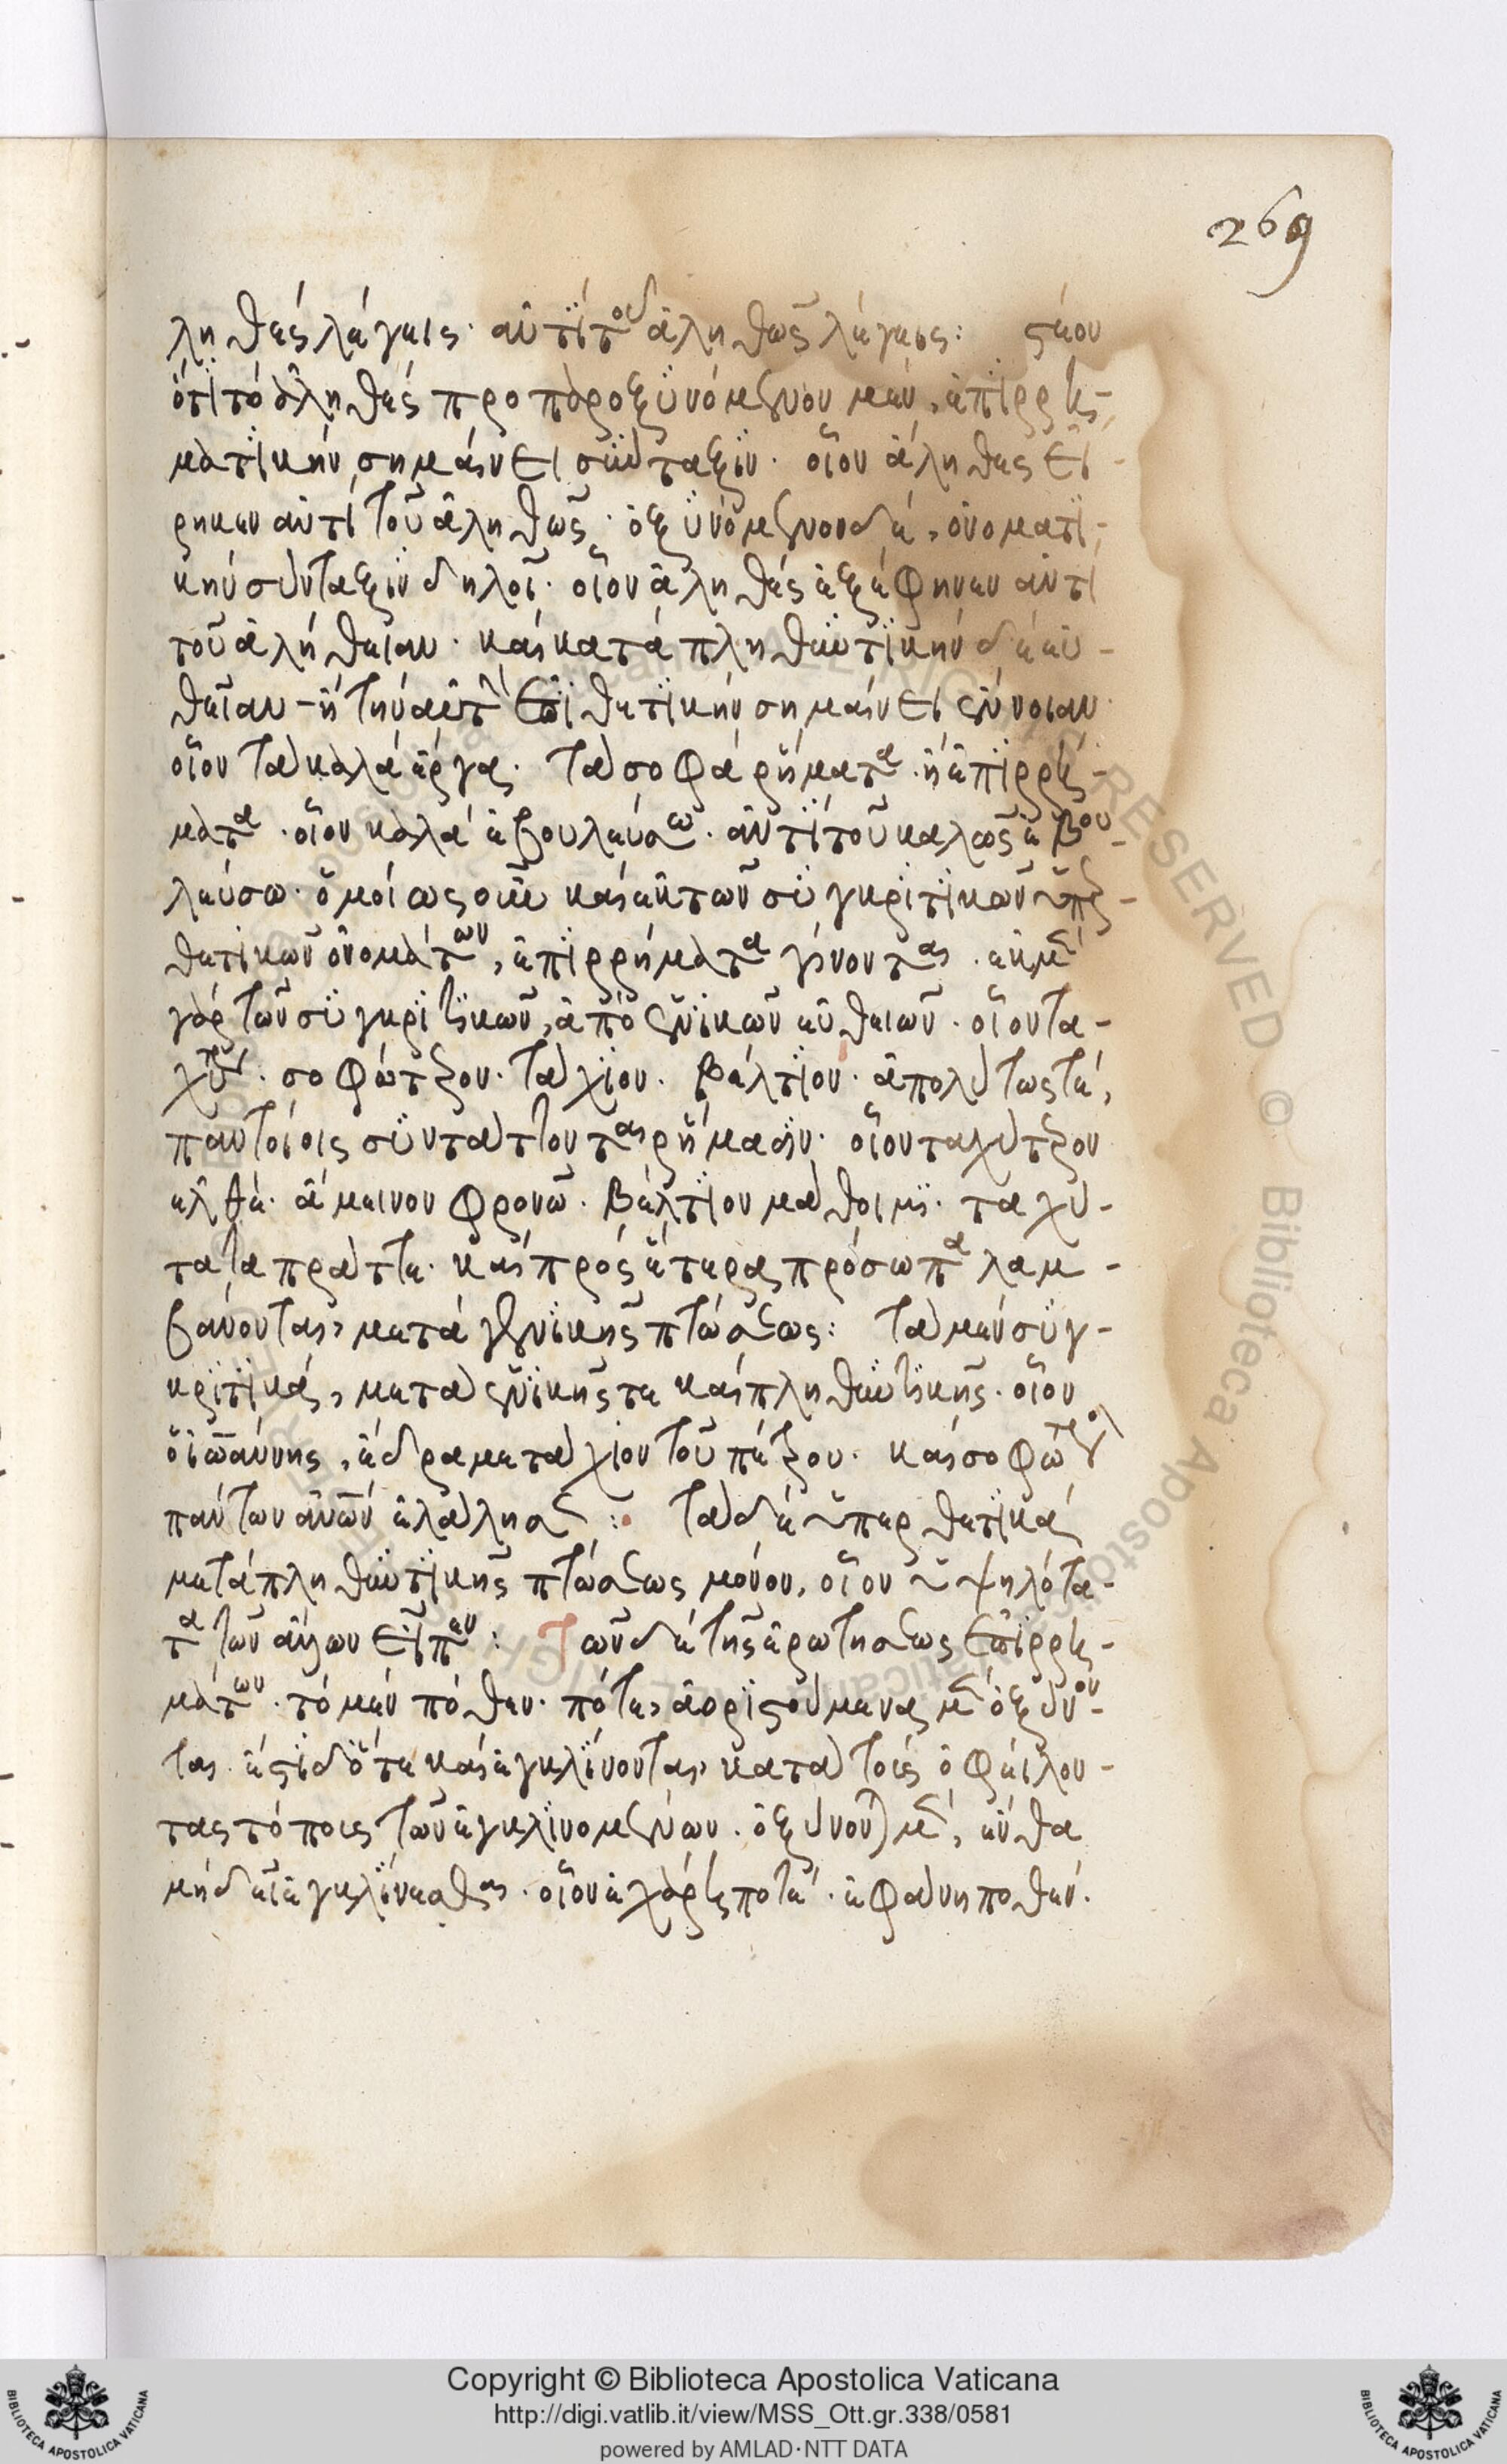 269
ληθές λέγεις· ἀντὶ τοῦ ἀληθῶς λέγεις: στέον
ὅτι τὸ ἄληθες προπαροξυνόμενον μέν, ἐπιρρη-
ματικὴν σημαίνει σύνταξιν. οἷον ἄληθες εἴ-
ρηκεν ἀντὶ τοῦ ἀληθῶς· ὀξυνόμενον δέ, ὀνοματι-
κὴν σύνταξιν δηλοῖ. οἷον ἀληθὲς ἐξέφηνεν ἀντὶ
τοῦ ἀλήθειαν. καὶ κατὰ πληθυντικὴν δὲ εὐ-
θεῖαν ἢ τὴν ἐπιθετικὴν σημαίνει ἔννοιαν
οἷον τὰ καλὰ ἔργα. τὰ σοφὰ ῥήματα. ἢ ἐπιρρή-
ματα. οἷον καλὰ ἐβουλεύσω. ἀντὶ τοῦ καλῶς ἐβου-
λεύσω. ὁμοίως οὖν καὶ ἐκ τῶν συγκριτικῶν ὑπερ-
θετικῶν ὀνομάτων, ἐπιρρήματα γίνονται. ἐκ μὲν
γὰρ τῶν συγκριτικῶν, ἀπὸ ἑνικῶν εὐθειῶν. οἷον τα-
χύτερον. σοφώτερον. τάχιον. βέλτιον. ἀπολύτως τέ,
παντοίοις συντάττονται ῥήμασιν. οἷον ταχύτερον
ἐλθέ. ἄμεινον φρονῶ. βέλτιον μάθοιμι. ταχύ-
τατα πράττε. καὶ πρὸς ἕτερα πρόσωπα λαμ-
βάνονται, μετὰ γενικῆς πτώσεως: τὰ μὲν συγ-
κριτικά, μετὰ ἑνικῆς τε καὶ πληθυντικῆς. οἷον
ὁ ἰωάννης, ἔδραμε τάχιον τοῦ πέτρου. καὶ σοφώτερον
πάντων ἀνῶν ἐλάλησε: τὰ δὲ ὑπερθετικὰ
μετὰ πληθυντικῆς πτώσεως μόνον, οἷον ὑψηλότα-
τα τῶν ἄλλων εἶπεν: Τῶν δὲ τῆς ἐρωτήσεως ἐπιρρη-
μάτων. τὸ μὲν πόθεν. πότε, ἀοριστούμενα μὲν ὀξύνον-
ται. ἔστι δ' ὅτε καὶ ἐγκλίνονται, κατὰ τοὺς ὀφείλον-
τας τόποις τῶν ἐγκλινομένων. ὀξύνονται μὲν, ἔνθα
μὴ δεῖ ἐγκλίνεσθαι. οἷον ἐχάρη ποτέ. ἐφάνη ποθέν.
Copyright © Biblioteca Apostolica Vaticana
http://digi.vatlib.it/view/MSS_Ott.gr.338/0581
powered by AMLAD·NTT DATA